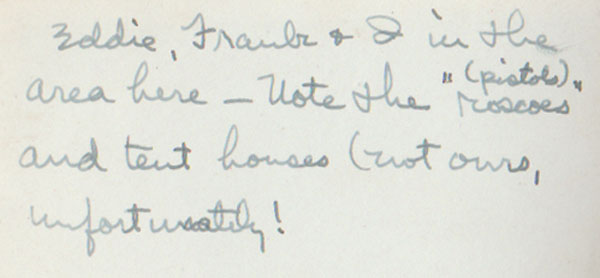 Eddie, Frank & I in the
area here – Note the "(pistols)
roscoes"
and tent houses (not ours,
unfortunately!